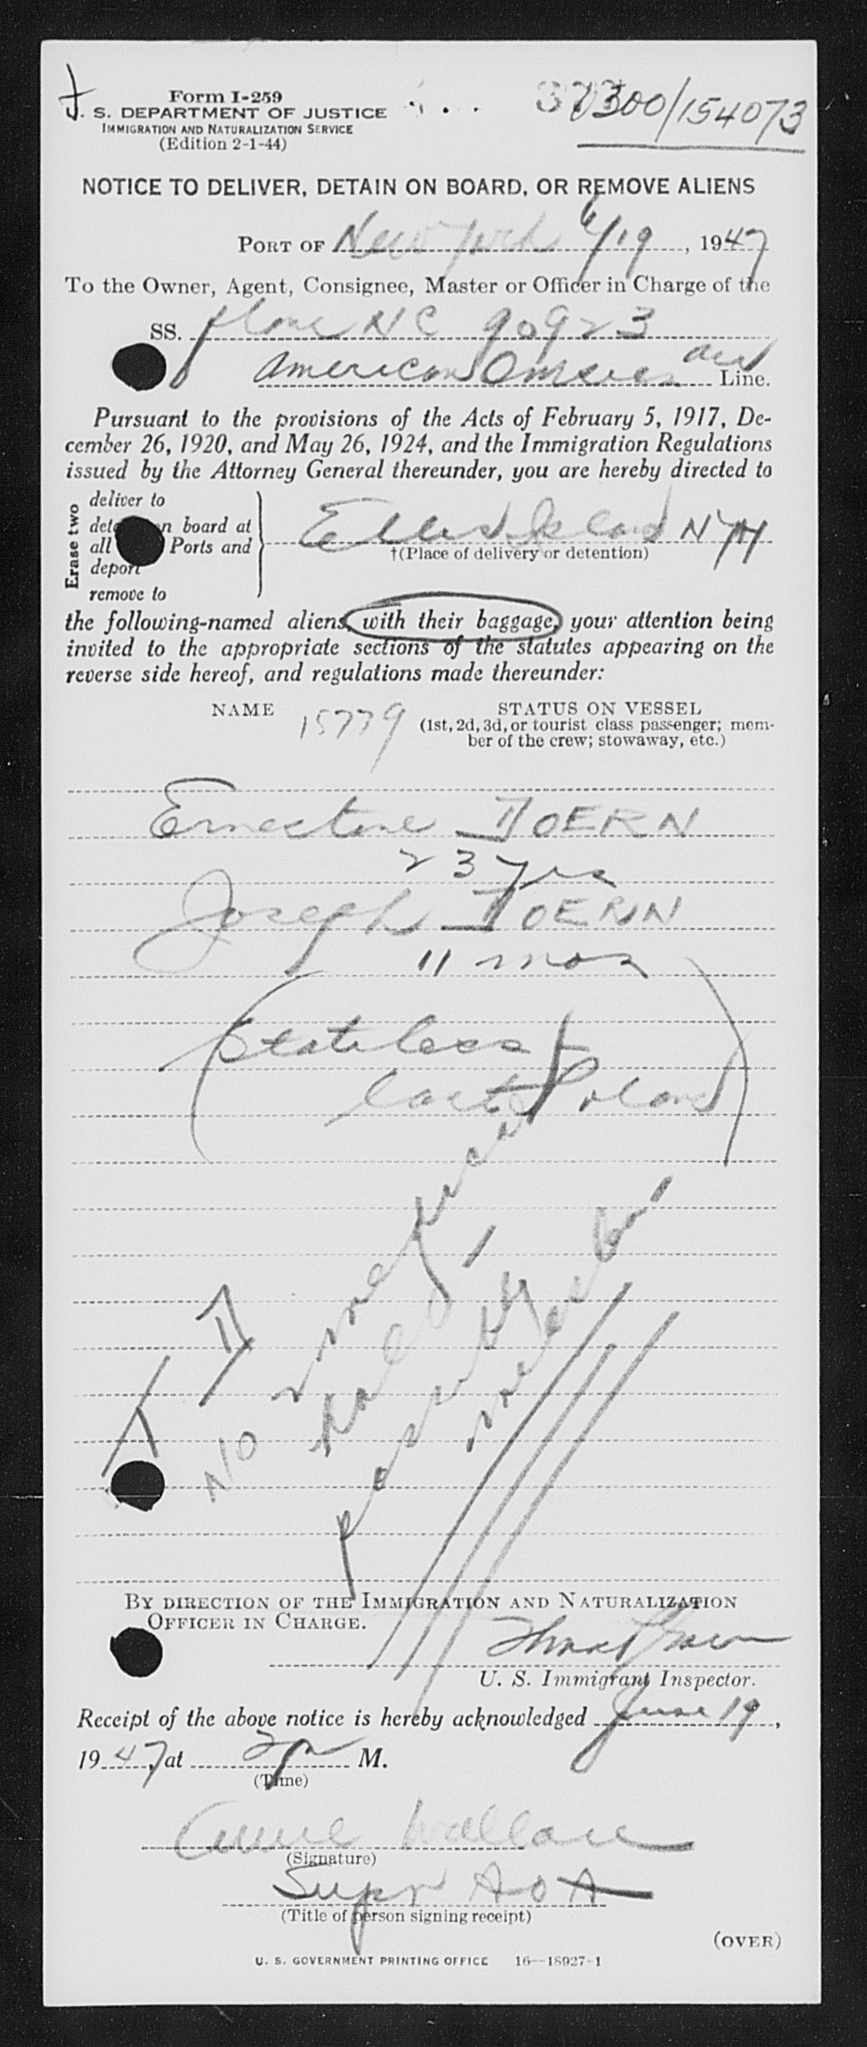 Form I-259
U. S. DEPARTMENT OF JUSTICE
IMMIGRATION AND NATURALIZATION SERVICE
(Edition 2-1-44)
300/154073
NOTICE TO DELIVER, DETAIN ON BOARD, OR REMOVE ALIENS
PORT OF New York 6/19, 1947
To the Owner, Agent, Consignee, Master or Officer in Charge of the
SS. plane NC 90923
American Overseas Line.
Pursuant to the provisions of the Acts of February 5, 1917, De-
cember 26, 1920, and May 26, 1924, and the Immigration Regulations
issued by the Attorney General thereunder, you are hereby directed to
Erase two
deliver to
detain on board at
all Ports and
deport
remove to
Ellis Island NYH
†(Place of delivery or detention)
the following-named aliens, with their baggage, your attention being
invited to the appropriate sections of the statutes appearing on the
reverse side hereof, and regulations made thereunder:
NAME 15779 STATUS ON VESSEL
(1st, 2d, 3d, or tourist class passenger; mem-
ber of the crew; stowaway, etc.)
Ernestine DOERN
23 yrs
Joseph DOERN
11 mos
(Stateless
last Poland)
TD
No medical
held
possibly
BY DIRECTION OF THE IMMIGRATION AND NATURALIZATION
OFFICER IN CHARGE.
U. S. Immigrant Inspector.
Receipt of the above notice is hereby acknowledged June 19,
1947, at 2 p M.
(Time)
Anne Wallace
(Signature)
Supr AOA
(Title of person signing receipt)
(OVER)
U. S. GOVERNMENT PRINTING OFFICE 16—18927-1